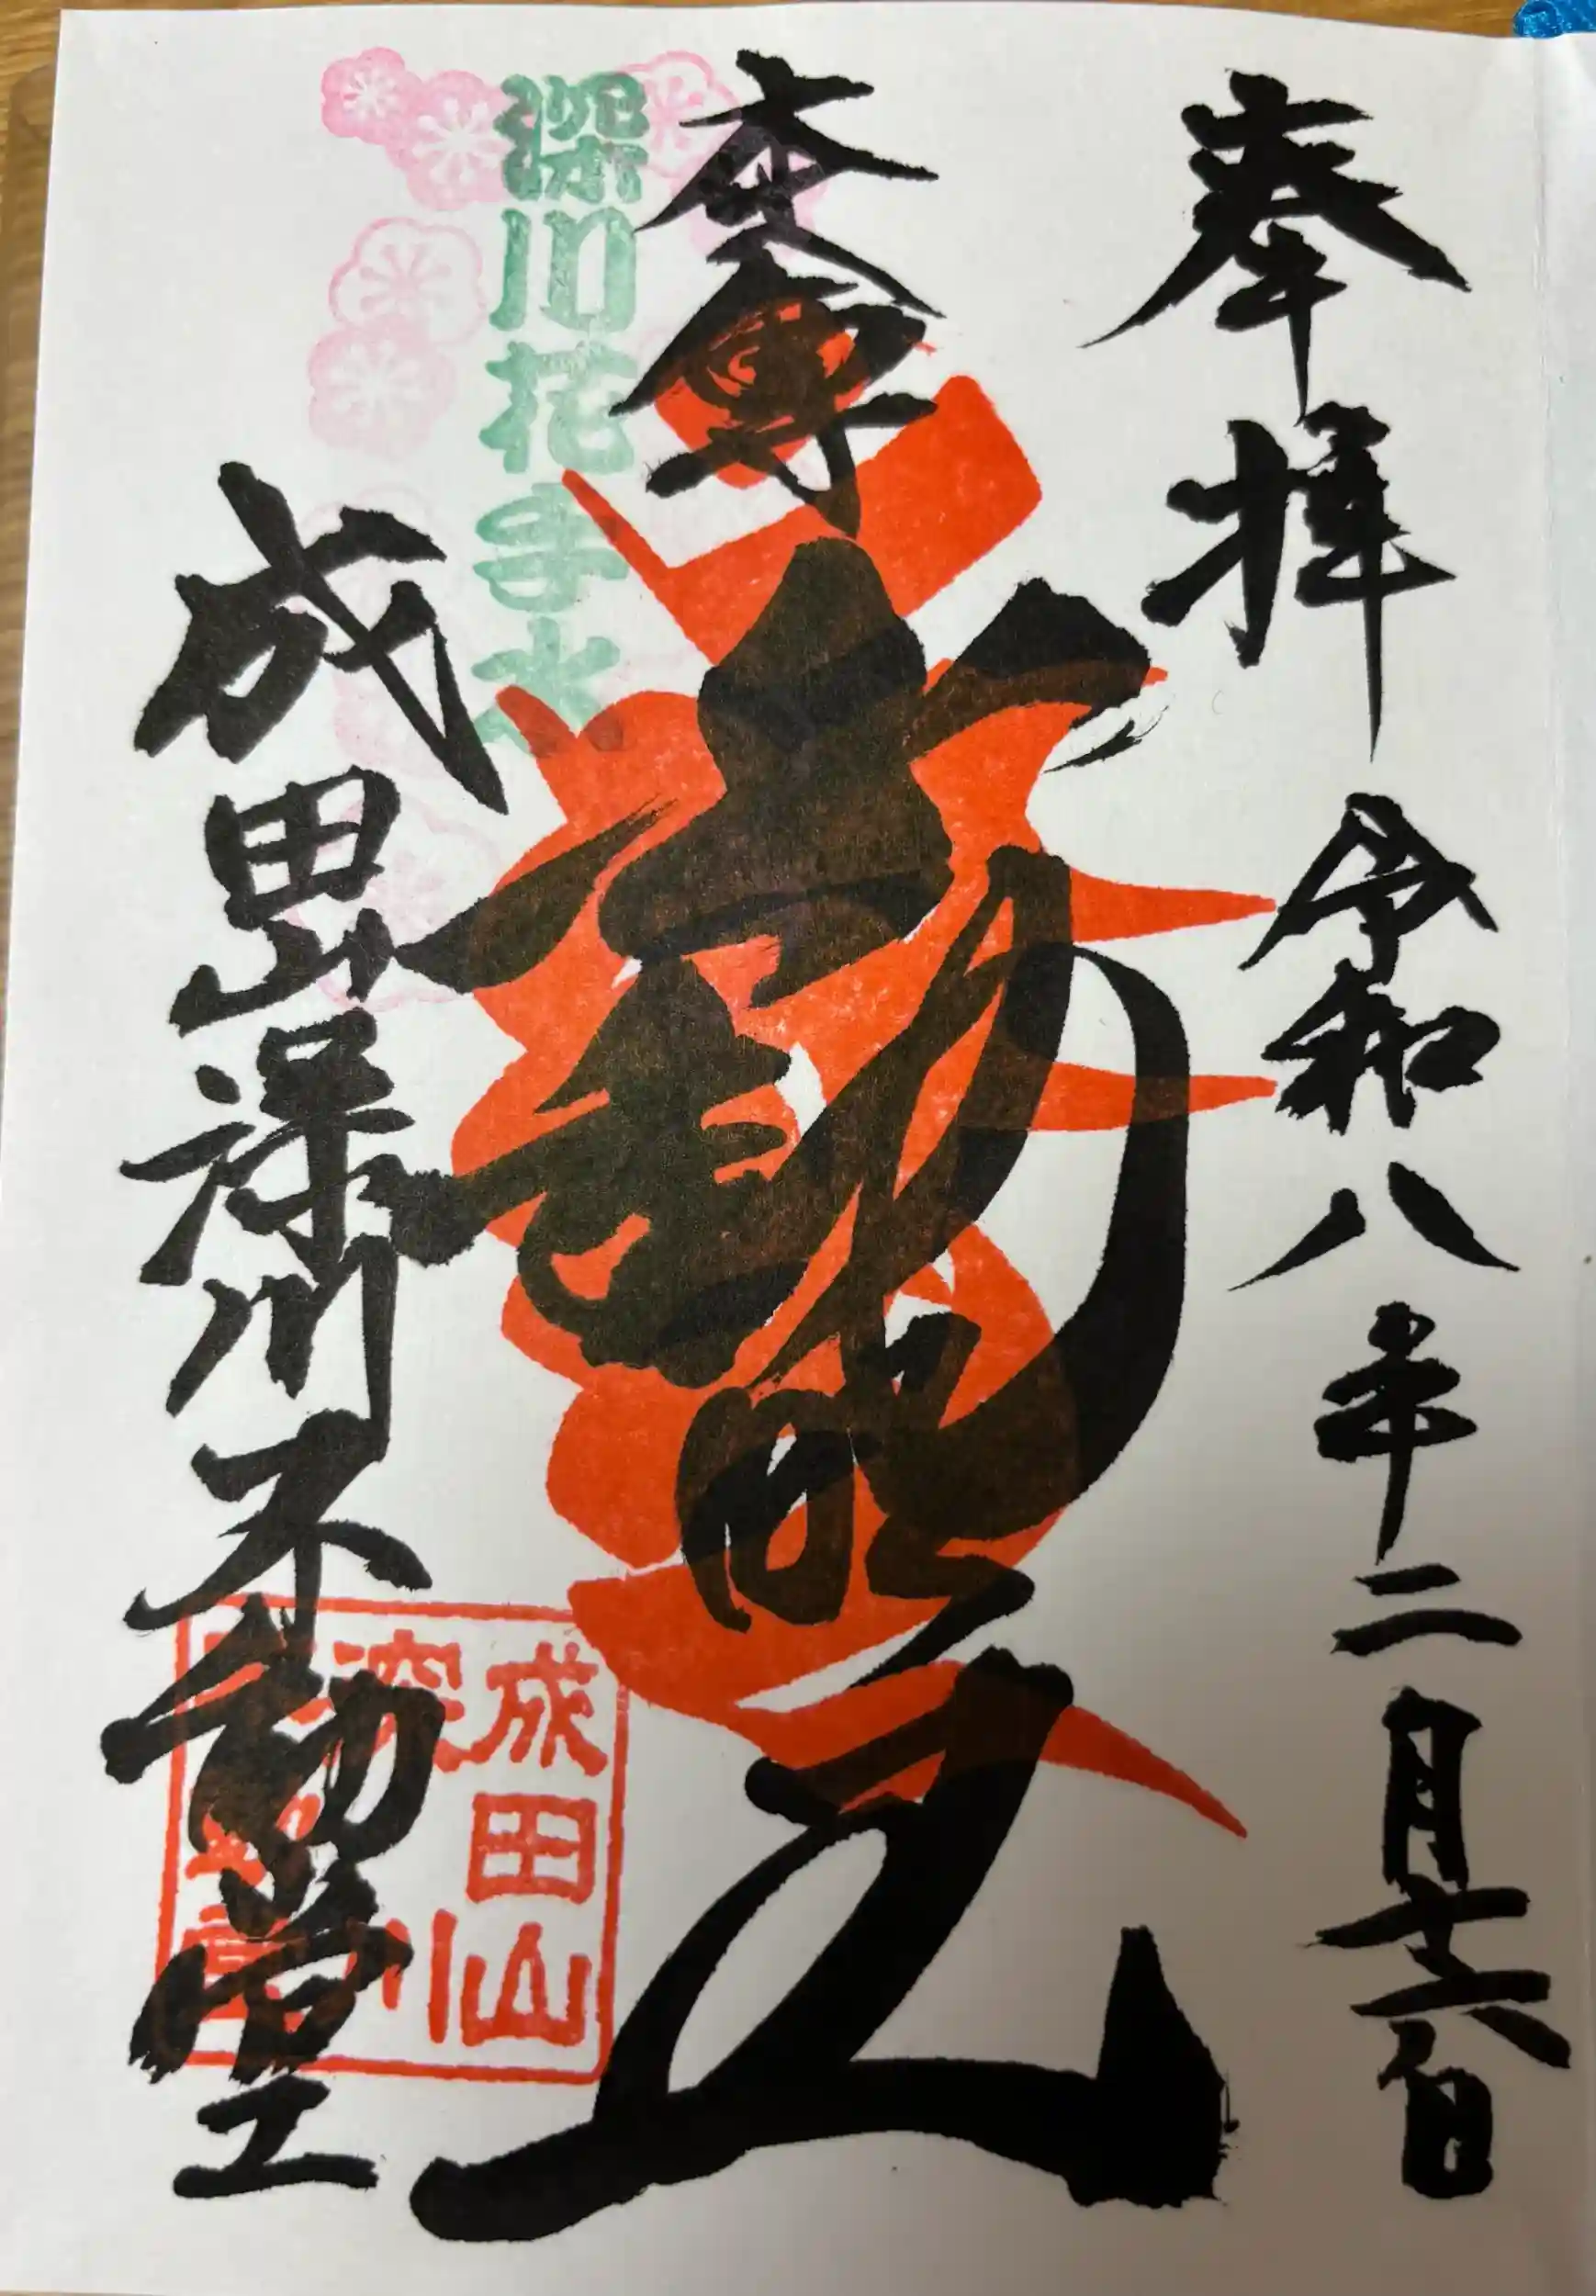 奉拝 令和八年二月十六日
本尊 不動明王
深川花手水
成田山深川不動堂
成田山
深川